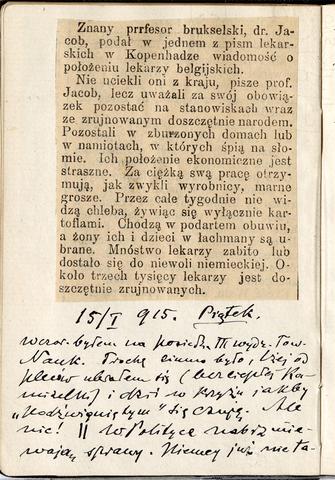 Znany prrfesor brukselski, dr. Ja-
cob, podał w jednem z pism lekar-
skich w Kopenhadze wiadomość o
położeniu lekarzy belgijskich.
Nie uciekli oni z kraju, pisze prof.
Jacob, lecz uważali za swój obowią-
zek pozostać na stanowiskach wraz
ze zrujnowanym doszczętnie narodem.
Pozostali w zburzonych domach lub
w namiotach, w których śpią na sło-
mie. Ich położenie ekonomiczne jest
straszne. Za ciężką swą pracę otrzy-
mują, jak zwykli wyrobnicy, marne
grosze. Przez całe tygodnie nie wi-
dzą chleba, żywiąc się wyłącznie kar-
toflami. Chodzą w podartem obuwiu,
a żony ich i dzieci w łachmany są u-
brane. Mnóstwo lekarzy zabito lub
dostało się do niewoli niemieckiej. O-
koło trzech tysięcy lekarzy jest do-
szczętnie zrujnowanych.
15/I 915. Piątek.
wczor. byłem na posiedz. III wydz. Tow.
Nauk. Trochę zimno było, i żej od
pleców ubrałem się (bez ciepłej ka-
mizelki) i dziś w krzyżu jakby
"podźwigniętym" się czuję. Ale
nic! || W Polityce nabrzmie-
wają sprawy. Niemcy już nie ta-